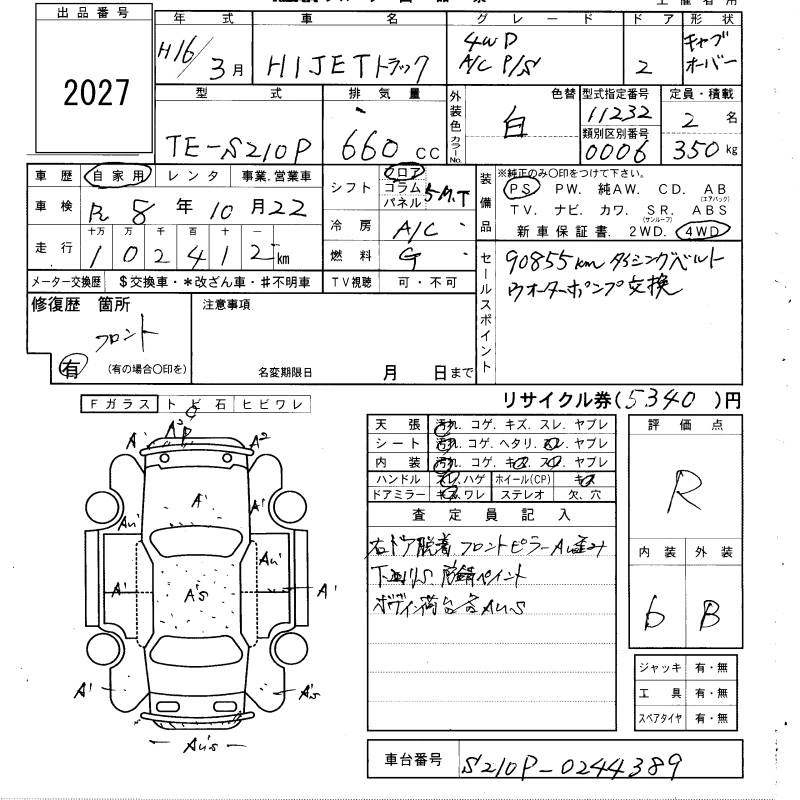 出品番号
2027
年 式
車 名
グ レ ー ド
ド ア
形 状
H16/3月
HIJETトラック
4WD
A/C P/S
2
キャブ
オーバー
型 式
排 気 量
外装色
カラーNo.
色替
型式指定番号
定員・積載
TE-S210P
660 CC
白
11232
類別区別番号
0006
2 名
350 kg
車 歴
自 家 用
レ ン タ
事業.営業車
車 検
R 8 年 10 月 22
走 行
十万 万 千 百 十 一
1 0 2 4 1 2 km
メーター交換歴
$交換車・*改ざん車・♯不明車
シフト
フロア
コラム
パネル
5M.T
冷 房
A/C
燃 料
G
TV視聴
可・不可
装備品
※純正のみ〇印をつけて下さい。
PS . PW. 純AW. CD. AB
(エアバック)
TV. ナビ. カワ. SR. ABS
(サンルーフ)
新車保証書. 2WD. 4WD
セールスポイント
90855km タイミングベルト
ウオーターポンプ交換
修復歴 箇所
フロント
有
(有の場合〇印を)
注意事項
名変期限日 月 日まで
リサイクル券(5340)円
Fガラス
ト ビ 石
ヒビワレ
A'
A²
A²
A'
A'
Au'
Au'
A'
A's
A'
A'
A's
Au's
天 張
汚れ. コゲ. キズ. スレ. ヤブレ
シート
汚れ. コゲ. ヘタリ. スレ. ヤブレ
内 装
汚れ. コゲ. キズ. スレ. ヤブレ
ハンドル
スレ.ハゲ
ホイール(CP)
キズ
ドアミラー
キズ.ワレ
ステレオ
欠. 穴
査 定 員 記 入
右ドア脱着 フロントピラーAu歪み
ボディ
評 価 点
R
内 装
外 装
6
B
ジャッキ
有・無
工 具
有・無
スペアタイヤ
有・無
車台番号
S210P-0244389